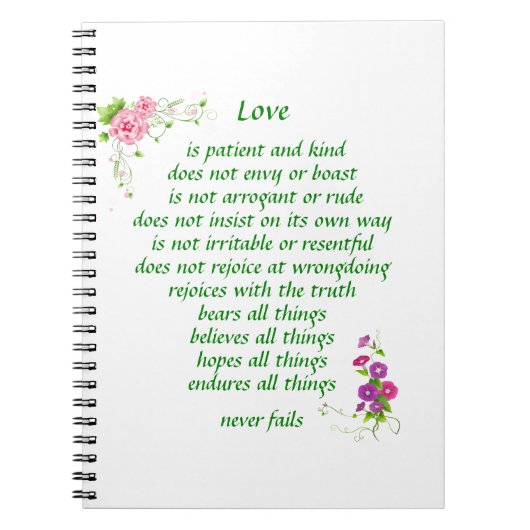 Love
is patient and kind
does not envy or boast
is not arrogant or rude
does not insist on its own way
is not irritable or resentful
does not rejoice at wrongdoing
rejoices with the truth
bears all things
believes all things
hopes all things
endures all things
never fails